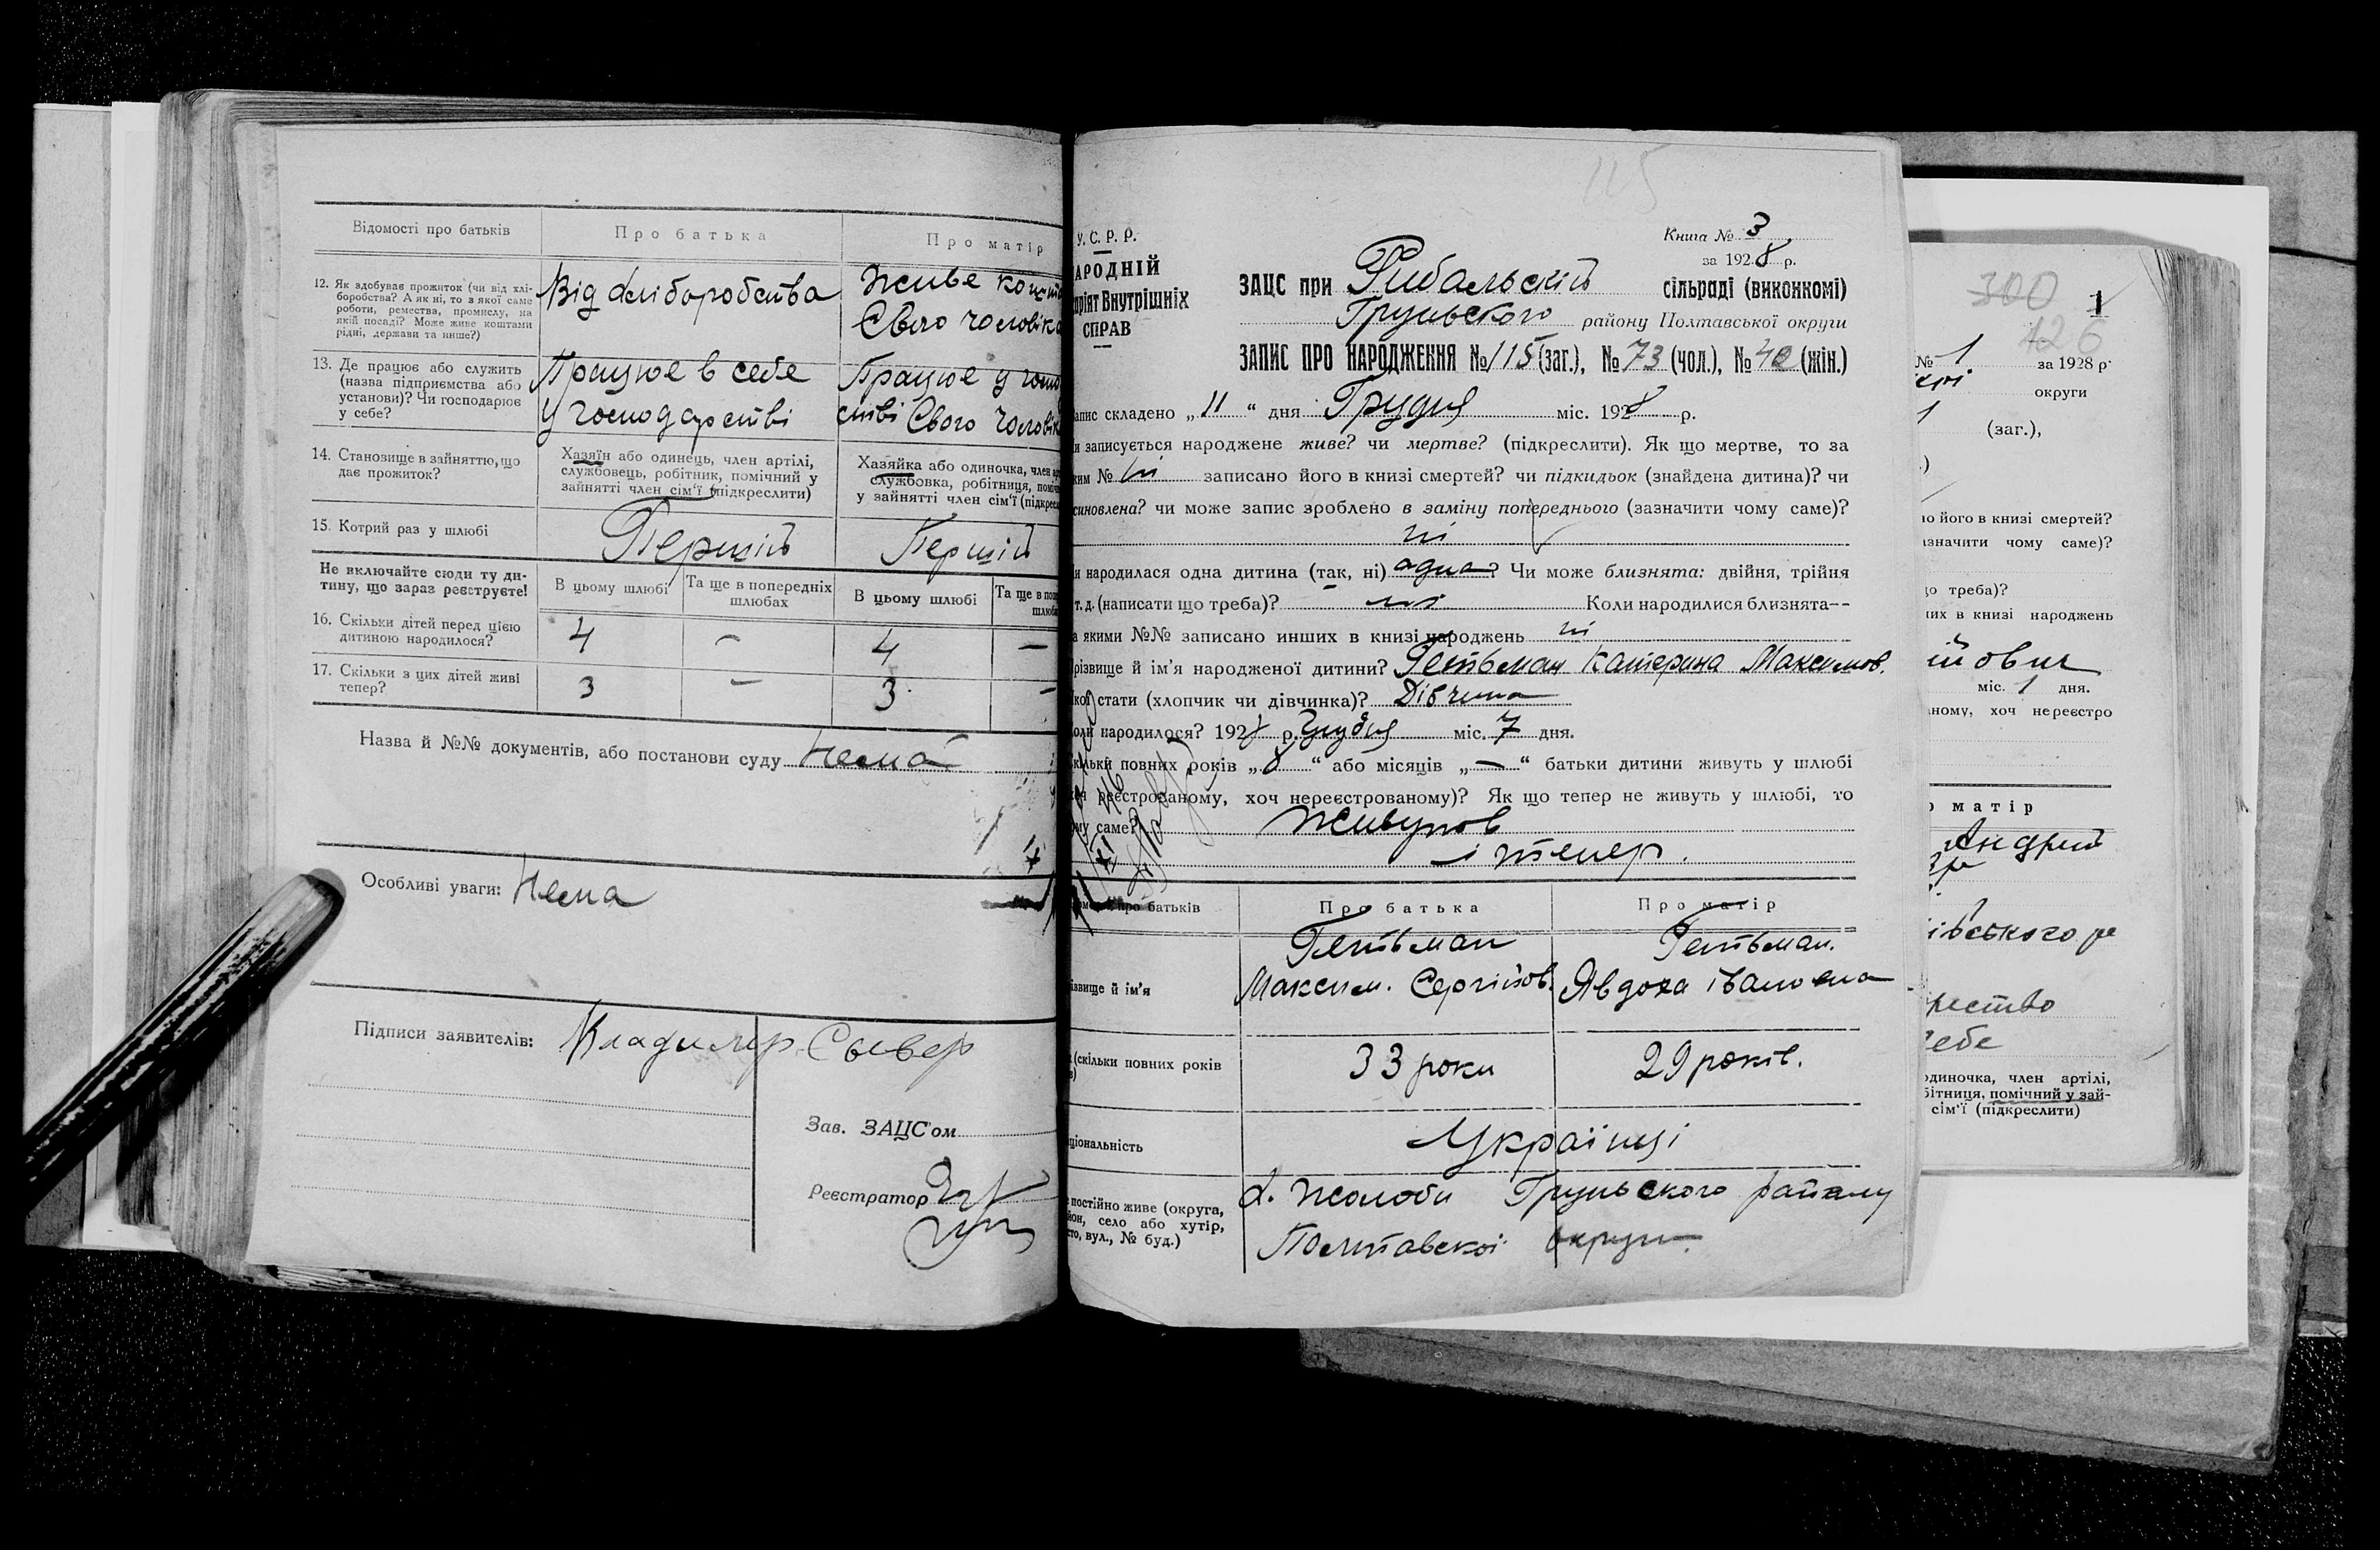 Відомості про батьків
Про батька
Про матір
12. Як здобуває прожиток (чи від хлі-
боробства? А як ні, то з якої саме
роботи, ремества, промислу, на
якій посаді? Може живе коштами
рідні, держави та инше?)
Від хліборобства
Живе кошта
Свого чоловіка
13. Де працює або служить
(назва підприємства або
установи)? Чи господарює
у себе?
Працює в себе
у господарстві
Працює у госпо
стві Свого Чоловіка
14. Становище в зайняттю, що
дає прожиток?
Хазяїн або одинець, член артілі,
службовець, робітник, помічний у
зайнятті член сім'ї (підкреслити)
Хазяйка або одиночка, член ар
службовка, робітниця, поміч
у зайнятті член сім'ї (підкресл
15. Котрий раз у шлюбі
Перший
Перший
Не включайте сюди ту ди-
тину, що зараз реєструєте!
В цьому шлюбі
Та ще в попередніх
шлюбах
В цьому шлюбі
Та ще в поп
шлюб
16. Скільки дітей перед цією
дитиною народилося?
4 – 4 –
17. Скільки з цих дітей живі
тепер?
3 – 3 –
Назва й №№ документів, або постанови суду Нема
Особливі уваги: Нема
Підписи заявителів:
Зав. ЗАЦС'ом
Реєстратор
125
У. С. Р. Р.
АРОДНІЙ
ріят Внутрішніх
СПРАВ
Книга № 3
за 1928 р.
ЗАЦС при Рибальскій сільраді (виконкомі)
Груньского району Полтавської округи
ЗАПИС ПРО НАРОДЖЕННЯ № 115 (заг.), № 73 (чол.), № 42 (жін.)
апис складено „11“ дня Грудня міс. 1928 р.
и записується народжене живе? чи мертве? (підкреслити). Як що мертве, то за
ким № ні записано його в книзі смертей? чи підкидьок (знайдена дитина)? чи
синовлена? чи може запис зроблено в заміну попереднього (зазначити чому саме)?
ні
и народилася одна дитина (так, ні) одна? Чи може близнята: двійня, трійня
т. д. (написати що треба)? ні Коли народилися близнята--
а якими №№ записано инших в книзі народжень ні
різвище й ім'я народженої дитини? Гетьман Катерина Максимов.
кої стати (хлопчик чи дівчинка)? Дівчина
оли народилося? 1928 р. Грудня міс. 7 дня.
кільки повних років „8“ або місяців „–“ батьки дитини живуть у шлюбі
оч реєстрованому, хоч нереєстрованому)? Як що тепер не живуть у шлюбі, то
ому саме?
і тепер.
про батьків
Про батька
Про матір
ізвище й ім'я
Гетьман
Максим. Сергійов.
Гетьман.
Явдоха Івановна
(скільки повних років
33 роки
29 років.
ціональність
Українці
постійно живе (округа,
йон, село або хутір,
сто, вул., № буд.)
х. Жолоби Груньского району
Полтавскої округи.
300
1
126
№ 1 за 1928 р.
округи
(заг.),
ло його в книзі смертей?
азначити чому саме)?
що треба)?
них в книзі народжень
йович
міс. 1 дня.
аному, хоч нереєстро
о матір
Андрій
івського р
себе
одиночка, член артілі,
бітниця, помічний у зай-
сім'ї (підкреслити)